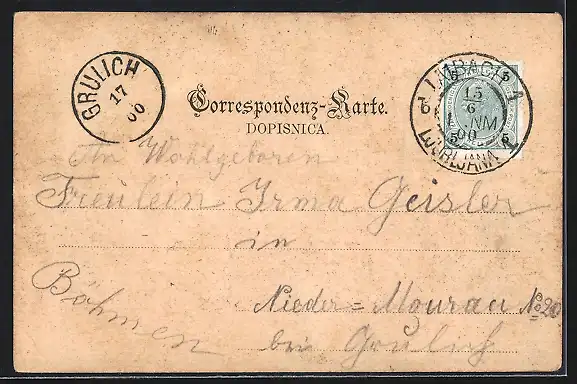 GRULICH
17
00
Correspondenz-Karte.
DOPISNICA.
LAIBACH 1
15
6
NM
00
LJUBLJANA
5 5
An Wohlgeboren
Freulein Irma Geisler
in
Nieder=Mourau No 20
Böhmen
bei Grulich